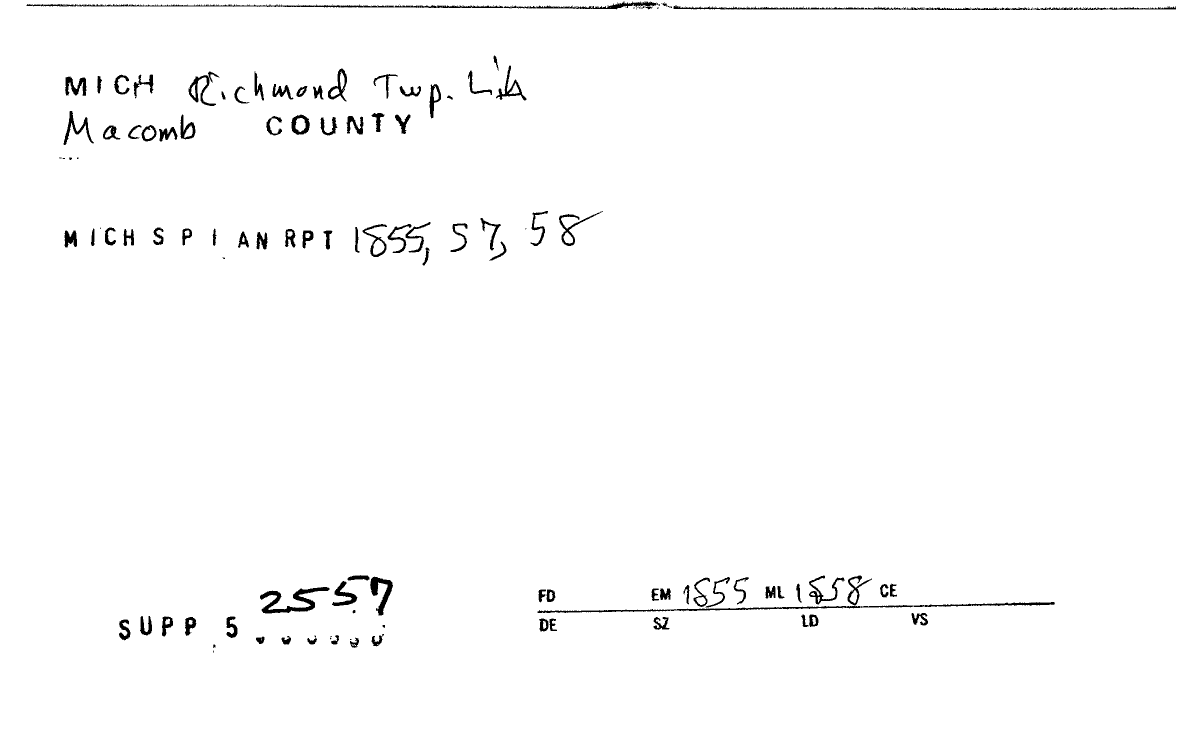 MICH Richmond Twp. Lib
Macomb COUNTY
MICH S P I AN RPT 1855, 57, 58
2557
SUPP 5
FD EM 1855 ML 1858 CE
DE SZ LD VS